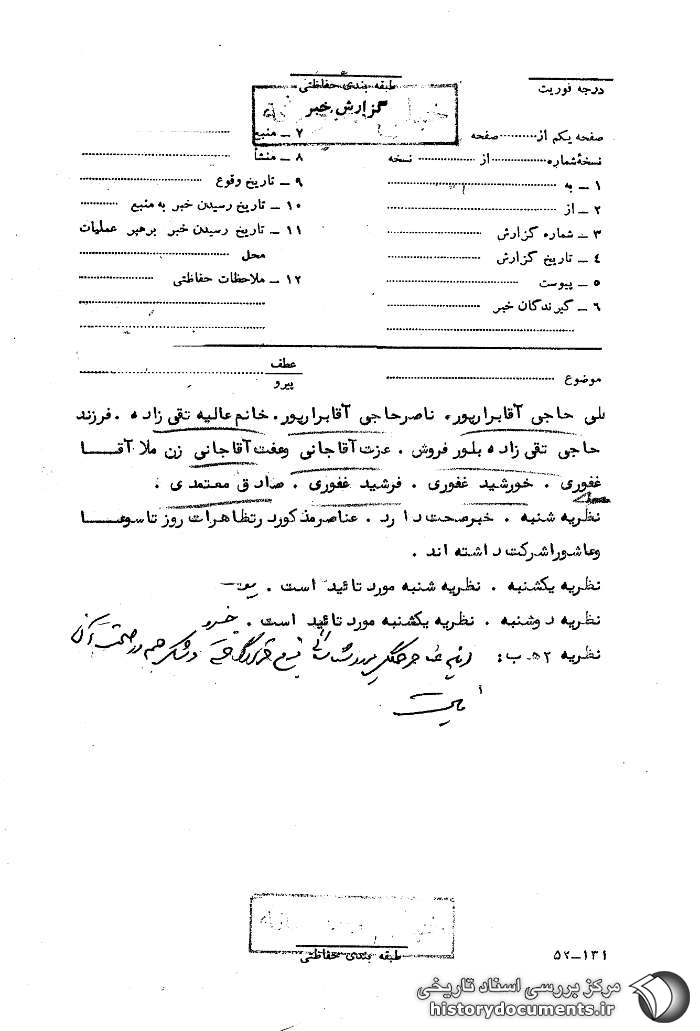 طبقه بندی حفاظتی
درجه فوریت
گزارش خبر
صفحه یکم از ........ صفحه
نسخهٔ شماره ........ از ........ نسخه
۱ ـ به
۲ ـ از
۳ ـ شماره گزارش
۴ ـ تاریخ گزارش
۵ ـ پیوست
۶ ـ گیرندگان خبر
۷ ـ منبع
۸ ـ منشأ
۹ ـ تاریخ وقوع
۱۰ ـ تاریخ رسیدن خبر به منبع
۱۱ ـ تاریخ رسیدن خبر برهبر عملیات
محل
۱۲ ـ ملاحظات حفاظتی
عطف
پیرو
موضوع
علی حاجی آقابرارپور، ناصرحاجی آقابرارپور. خانم عالیه تقی زاده . فرزند
حاجی تقی زاده بلور فروش . عزت آقاجانی وعفت آقاجانی زن ملا آقـا
غفوری . خورشید غفوری . فرشید غفوری . صادق معتمدی .
نظریه شنبه . خبرصحت دارد . عناصرمذکوردرتظاهرات روز تاسوعـا
وعاشوراشرکت داشته اند .
نظریه یکشنبه . نظریه شنبه مورد تائید است .
نظریه دوشنبه . نظریه یکشنبه مورد تائید است . خسرو
نظریه ۲ هـ ب :
طبقه بندی حفاظتی
۵۲-۱۳۱
مرکز بررسی اسناد تاریخی
historydocuments.ir